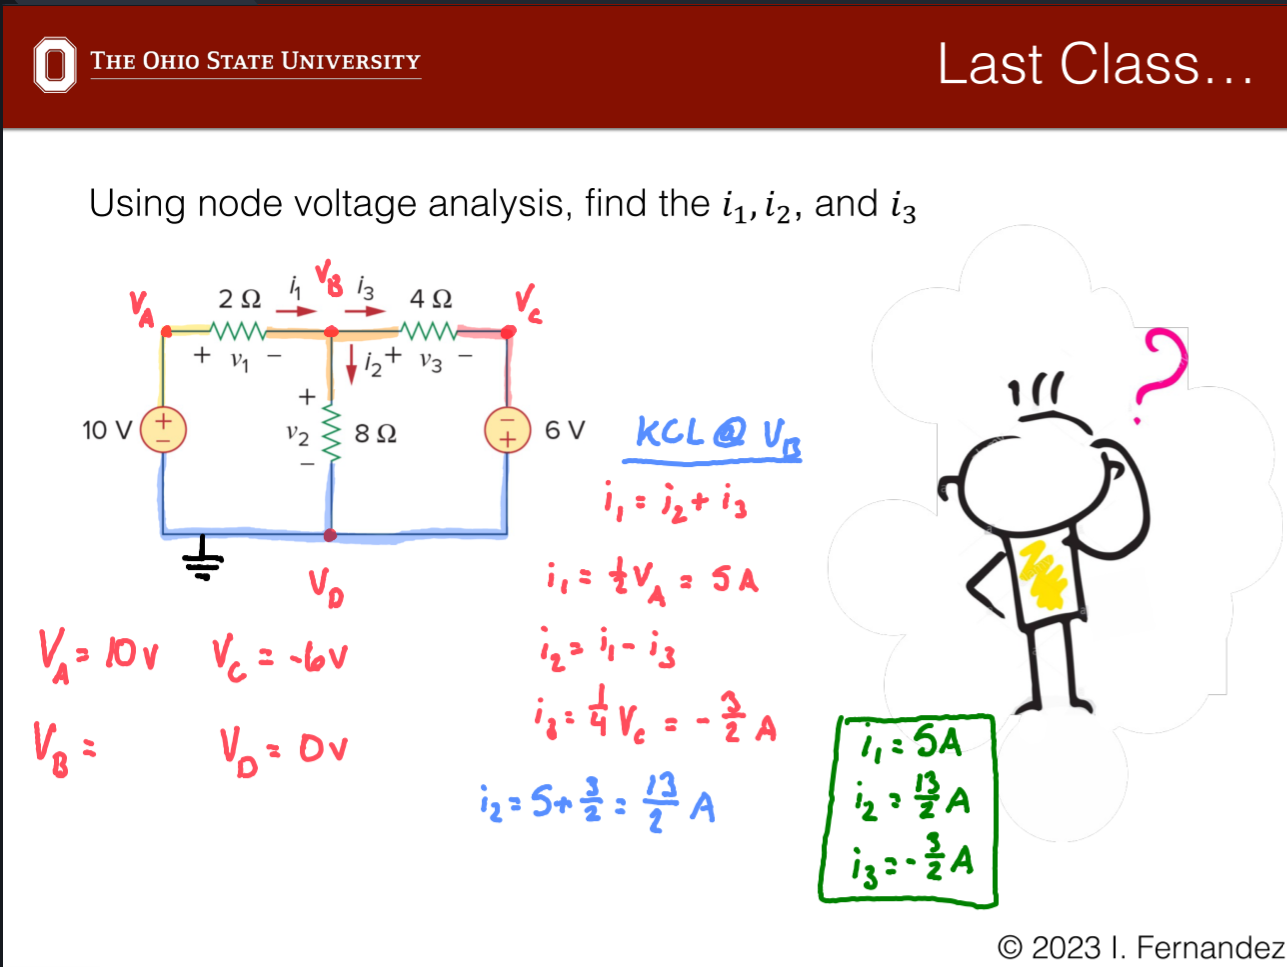 THE OHIO STATE UNIVERSITY
Last Class...
Using node voltage analysis, find the i₁, i₂, and i₃
V_A
2 Ω
i₁
V_B
i₃
4 Ω
V_C
+ v₁ −
i₂
+ v₃ −
10 V
+
−
+
v₂
−
8 Ω
−
+
6 V
V_D
KCL @ V_B
i₁ = i₂ + i₃
i₁ = ½ V_A = 5 A
i₂ = i₁ - i₃
i₃ = ¼ V_C = - 3/2 A
i₂ = 5 + 3/2 = 13/2 A
V_A = 10 V V_C = -6V
V_B = V_D = 0V
i₁ = 5A
i₂ = 13/2 A
i₃ = - 3/2 A
?
© 2023 I. Fernandez